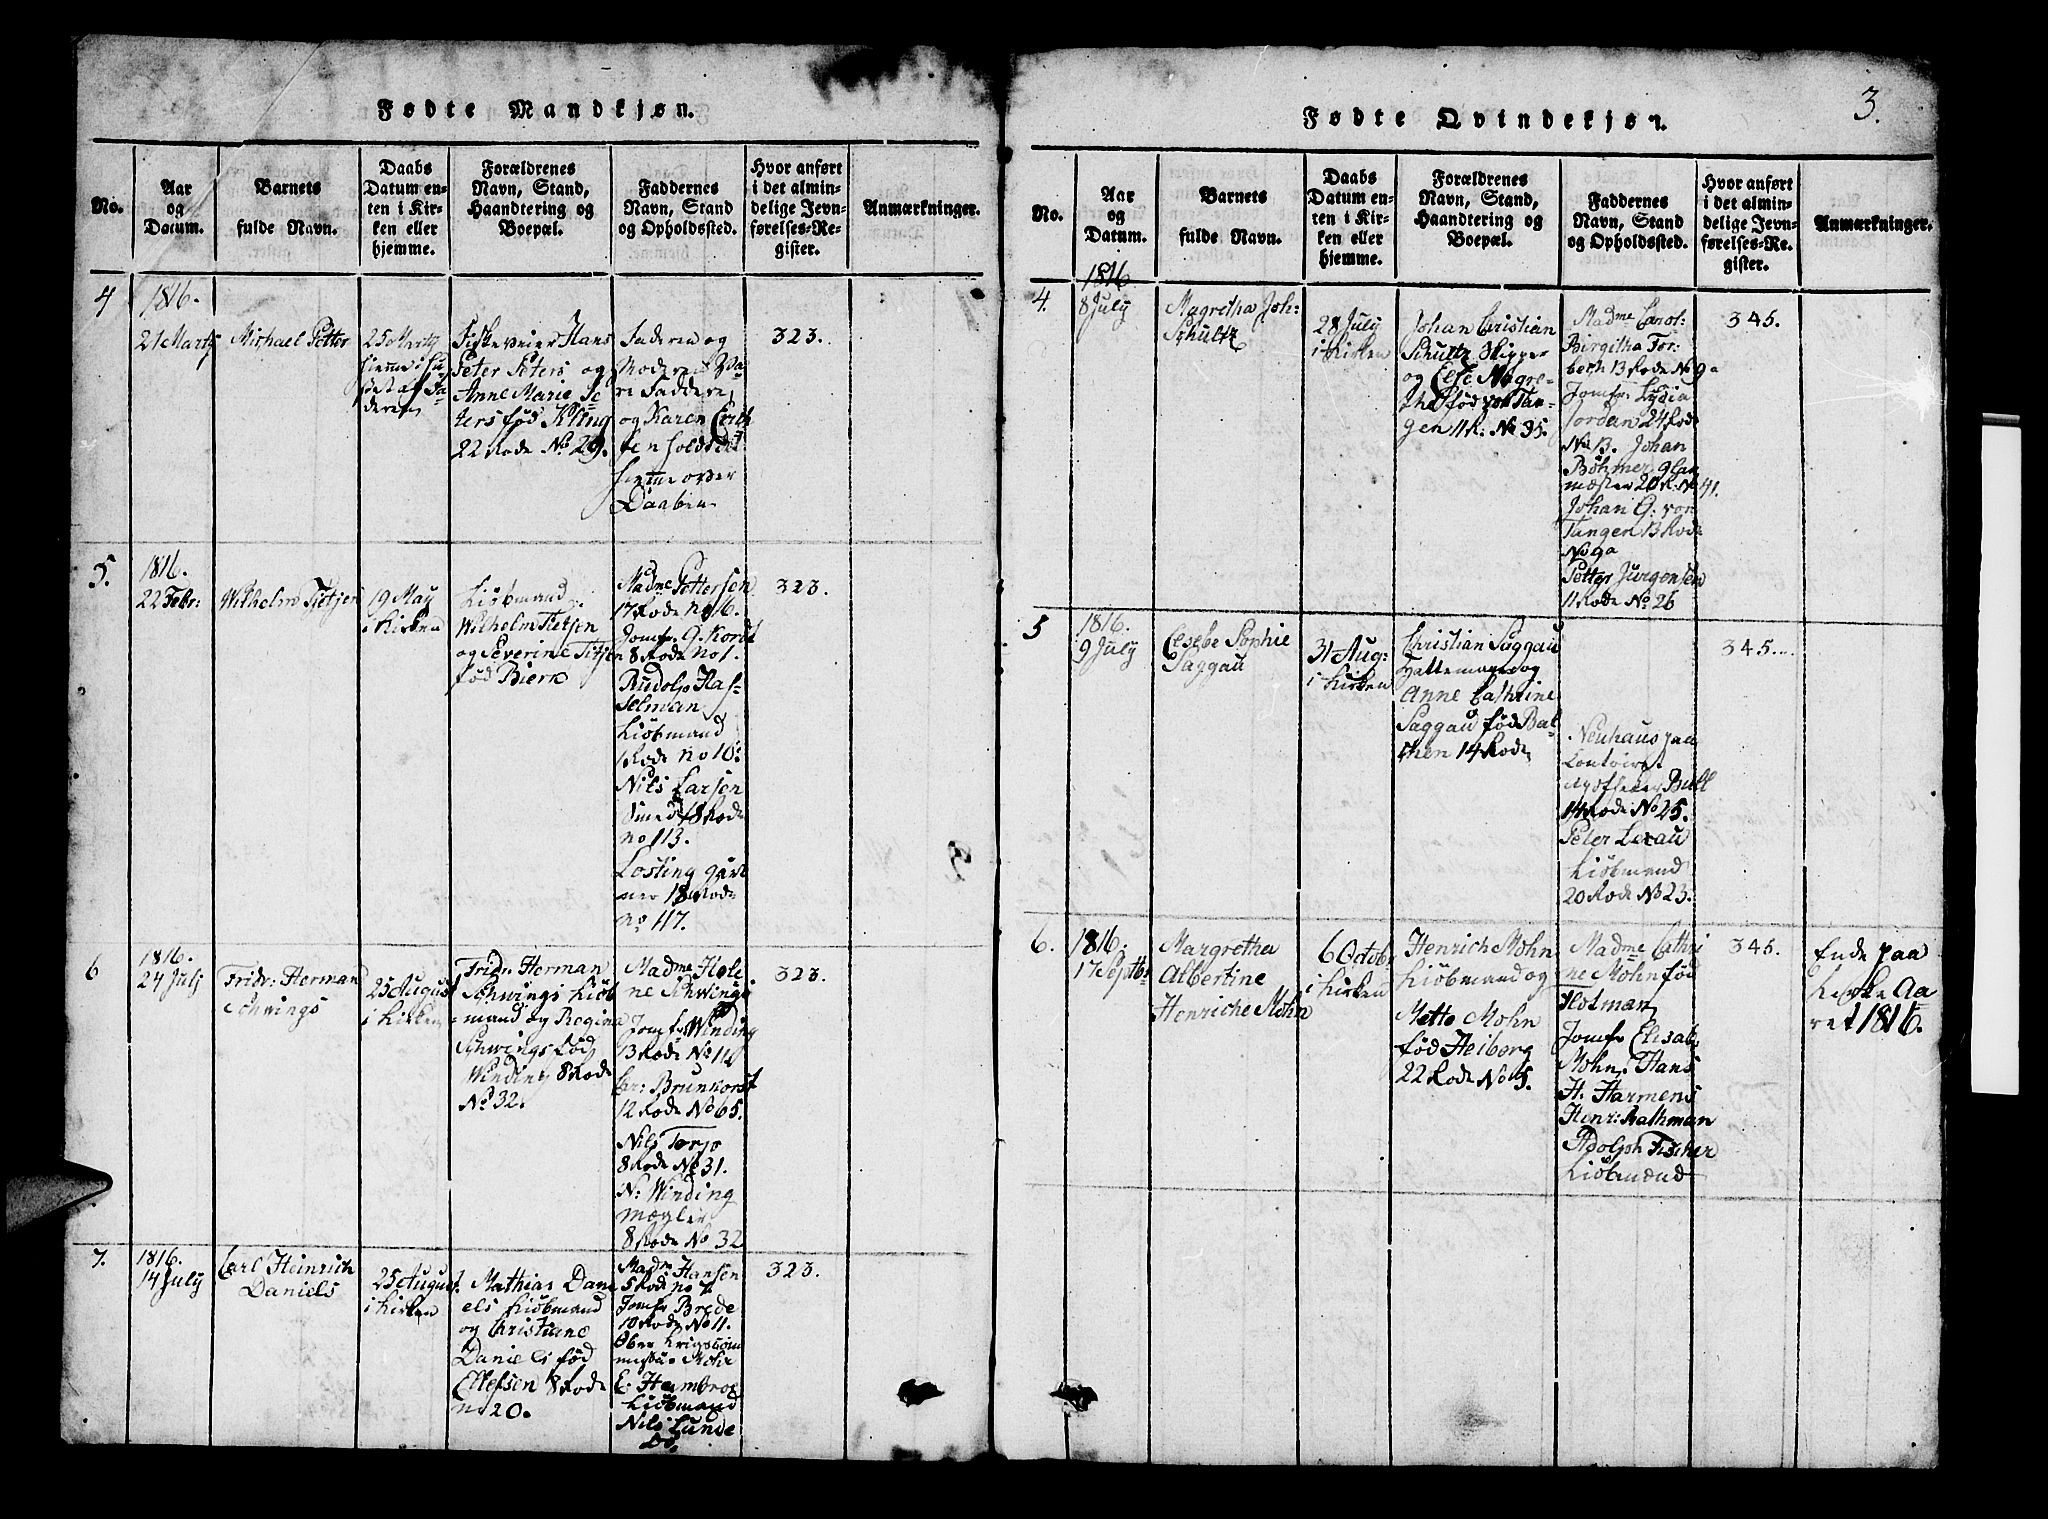 Fødte Mandkjøn.
No.
Aar
og
Datum.
Barnets
fulde Navn.
Daabs
Datum en-
ten i Kir-
ken eller
hjemme.
Forældrenes
Navn, Stand,
Haandtering og
Boepæl.
Faddernes
Navn, Stand
og Opholdssted.
Hvor anført
i det almin-
delige Jevn-
førelses-Re-
gister.
Anmærkninger.
4
1816.
21 Marty
Michael Petter
25 Marty
hiemme i Hu-
set af Fa-
deren
Hans
Peter Peters og
Anne Marie Pe-
ters fød Kling
22 Rode No 29.
Faderen og
Moderen Va-
re Faddere
og Karen
holdt det
hiemme over
Daaben
323.
5.
1816.
22 Febr:
Wilhelm Tietjen
19 May
i Kirken
Kiöbmand
Wilhelm Tietjen
og Severine Titjen
fød Bierk
Madme Pettersen
17 Rode no 16.
Jomfr. G. Kordt
8 Rode no 1.
Rudolp Has-
selman
Kiöbmand
1 Rode no 10.
Nils Larsen
Smed 18 Rode
no 113.
Losting gart
ner 18 Rode
no 117.
323.
6
1816.
24 July
Fridr: Herman
Schwings
25 August
i Kirken
Fridr: Herman
Schwings Kiöb
mand og Regina
Schwings fød
Winding 8 Rode
No 32.
Madme Hele
ne Schwings
Jomfr Winding
13 Rode No 11
Car: Brunkorst
12 Rode No 65.
Nils Torjo
8 Rode No 31.
N: Winding
mægler
8 Rode No 32
323.
7.
1816.
14 July
Carl Heinrich
Daniels
25 August.
i Kirken
Mathias Dani
els Kiöbmand
og Christiane
Daniels fød
Ellefsen 8 Rode
no 20.
Madm Hansen
5 Rode no 7
Jomfr Brede
10 Rode No 11.
Ober Krigscom
missær Mohr
E: Hambroe
Kiöbmand
Nils Lunde
Do.
323.
3.
Fødte Qvindekjøn.
No.
Aar
og
Datum.
Barnets
fulde Navn.
Daabs
Datum en-
ten i Kir-
ken eller
hjemme.
Forældrenes
Navn, Stand,
Haandtering og
Boepæl.
Faddernes
Navn, Stand
og Opholdssted.
Hvor anført
i det almin-
delige Jevn-
førelses-Re-
gister.
Anmærkninger.
4.
1816
8 July
Magretha Joh:
Schultz
28 July
i Kirken
Johan Christian
Schultz Skipper
og Else Magre-
tha fød von Tan-
gen 11 R. No 35.
Madme Carol:
Birgitha Tor-
berh 13 Rode No 9a
Jomfr. Lydia
Jordan 24 Rode
No 13. Johan
Böhmer glar
mæster 20 R. No 41.
Johan G: von
Tangen 13 Rode
No 9a
Petter Jürgensen
11 Rode No 26
345.
5
1816.
9 July
Elsebe Sophie
Saggau
31 Aug:
i Kirken
Christian Saggau
Hattemager og
Anne Cathrine
Saggau fød Bat
chen 14 Rode
Neuhaus paa
Contoiret
Bull
14 Rode No 25.
Peter Lexau
Kiöbmand
20 Rode No 23.
345.
6.
1816.
17 Septbr
Margretha
Albertine
Henriche Mohn
6 Octobr
i Kirken
Henrich Mohn
Kiöbmand og
Mette Mohn
fød Heiberg
22 Rode No 5.
Madme Cathri
ne Mohn fød
Holtman
Jomfr Elisab:
Mohn. Hans
H. Harmens
Henr: Rathman
Adolph Fischer
Kiöbmænd
345.
Ende paa
Kirke Aa
ret 1816.